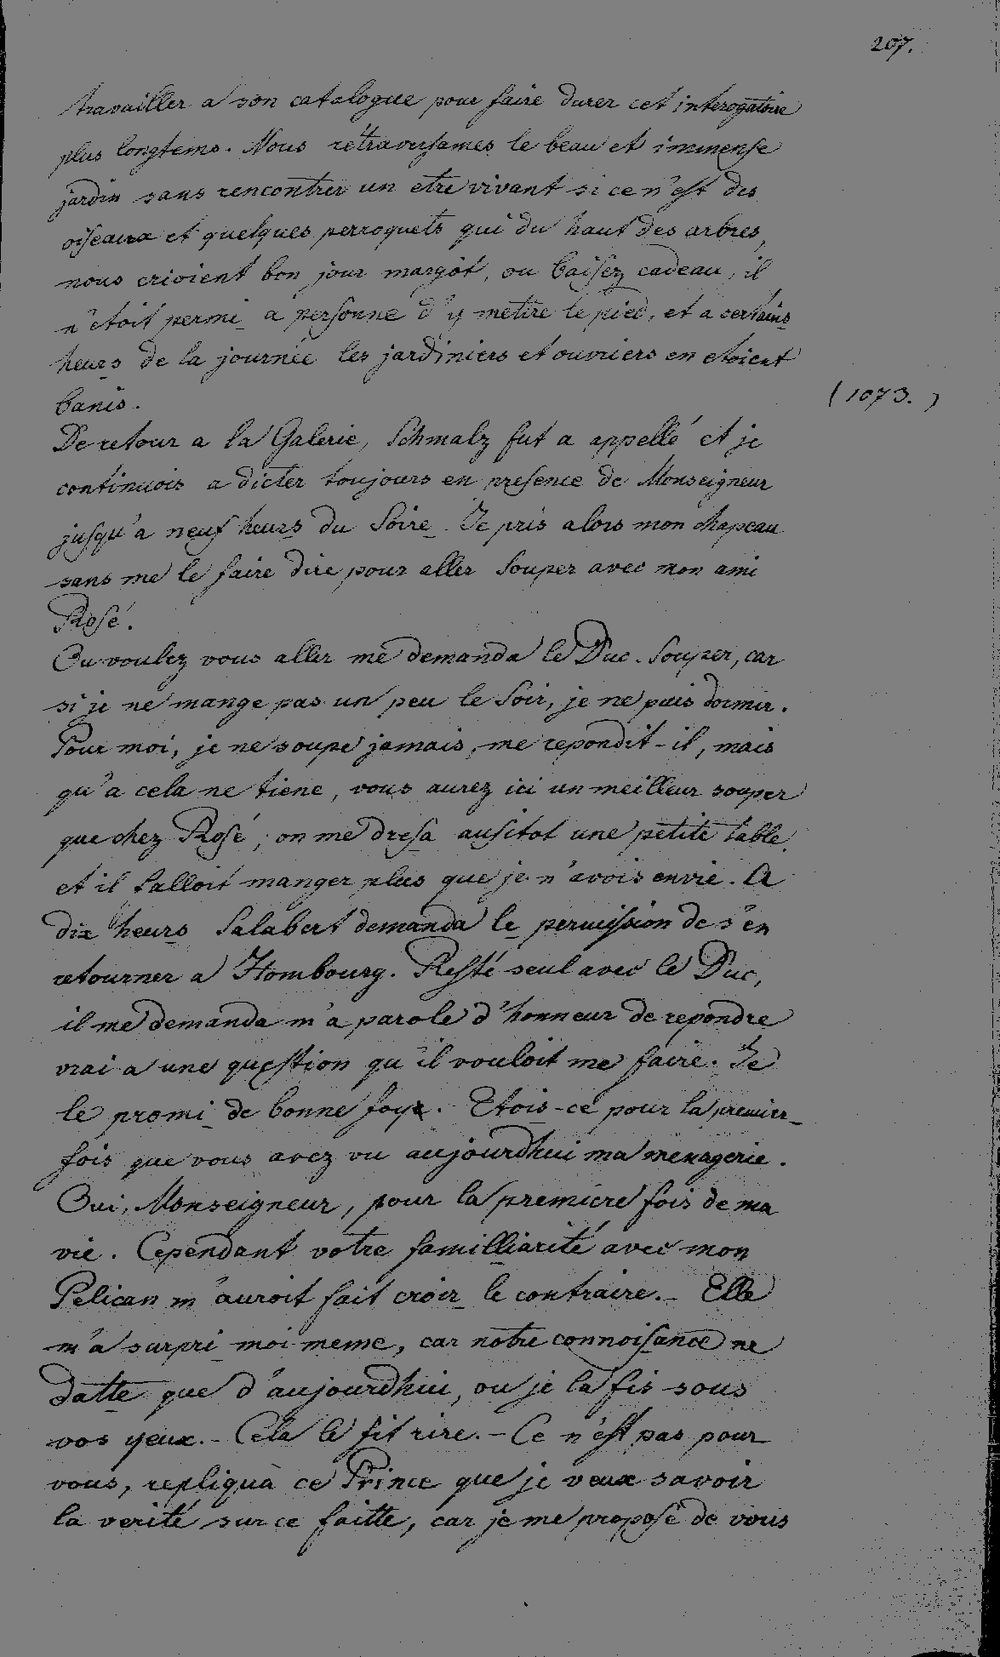 207.
travailler a son catalogue pour faire durer cet interogatoire
plus longtems. Nous retraversames le beau et immense
jardin sans rencontrer un etre vivant si ce n'est des
oiseaux et quelques perroquets qui du haut des arbres,
nous crioient bon jour margot, ou baisez cadeau, il
n'etoit permi a personne d'y mettre le pied, et a certains
heurs de la journée les jardiniers et ouvriers en etoient
banis.
(1073.)
De retour a la Galerie, Schmalz fut a appellé et je
continuois a dicter toujours en presence de Monseigneur
jusqu'a neuf heurs du Soire. Je pris alors mon chapeau
sans me le faire dire pour aller Souper avec mon ami
Rosé.
Ou voulez vous aller me demanda le Duc. Souper, car
si je ne mange pas un peu le Soir, je ne puis dormir.
Pour moi, je ne soupe jamais, me repondit-il, mais
qu'a cela ne tiene, vous aurez ici un meilleur souper
que chez Rosé; on me dresa ausitot une petite table,
et il falloit manger plus que je n'avois envie. A
dix heurs Salabert demanda le permission de s'en
retourner a Hombourg. Resté seul avec le Duc,
il me demanda m'a parole d'honneur de repondre
vrai a une question qu'il vouloit me faire. Je
le promi de bonne foye. Etois-ce pour la premier
fois que vous avez vu aujourdhui ma menagerie.
Oui, Monseigneur, pour la premiere fois de ma
vie. Cependant votre familliarité avec mon
Pelican m'auroit fait croir le contraire. - Elle
m'a surpri moi meme, car notre connoisance ne
datte que d'aujourdhui, ou je la fis sous
vos yeux. - Cela le fit rire. - Ce n'est pas pour
vous, repliqua ce Prince que je veux savoir
la verité sur ce faitte, car je me propose de vous